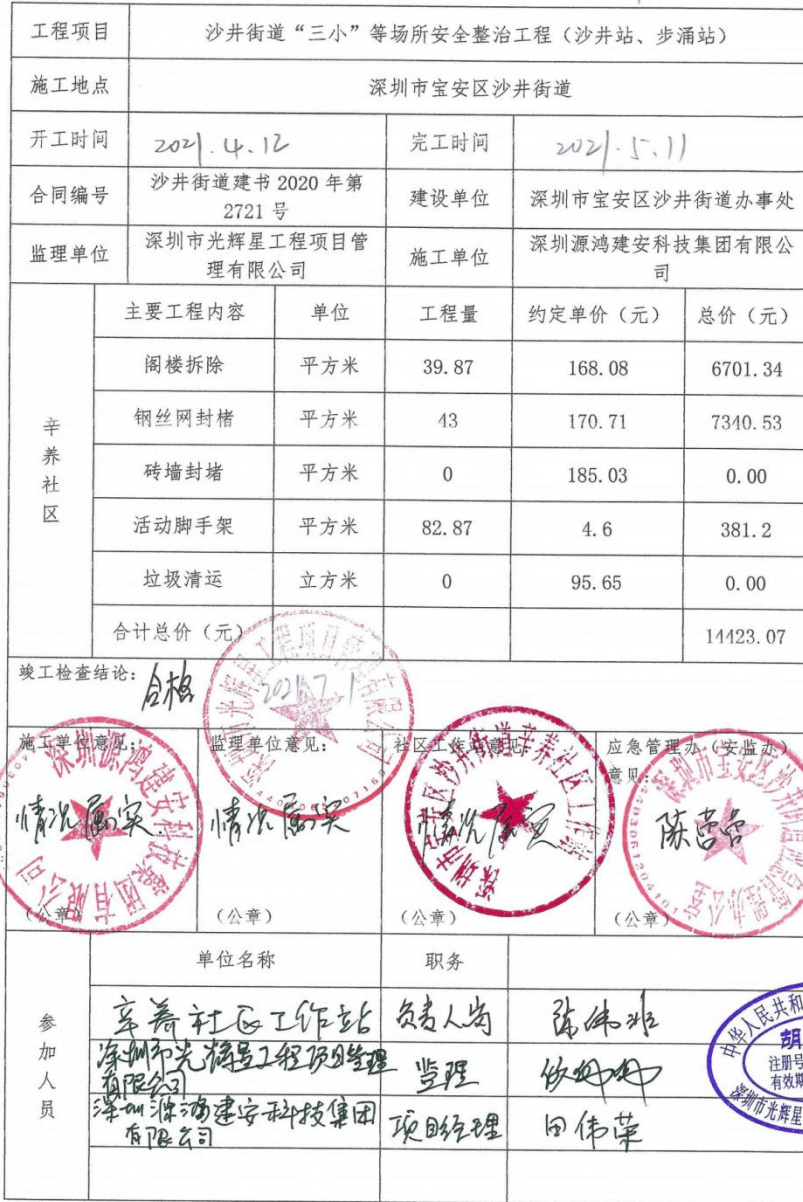 工程项目 沙井街道“三小”等场所安全整治工程（沙井站、步涌站）
施工地点 深圳市宝安区沙井街道
开工时间 2021.4.12 完工时间 2021.5.11
合同编号 沙井街道建书 2020 年第
2721 号 建设单位 深圳市宝安区沙井街道办事处
监理单位 深圳市光辉星工程项目管
理有限公司 施工单位 深圳源鸿建安科技集团有限公
司
辛养社区
主要工程内容 单位 工程量 约定单价（元） 总价（元）
阁楼拆除 平方米 39.87 168.08 6701.34
钢丝网封楮 平方米 43 170.71 7340.53
砖墙封堵 平方米 0 185.03 0.00
活动脚手架 平方米 82.87 4.6 381.2
垃圾清运 立方米 0 95.65 0.00
合计总价（元） 14423.07
竣工检查结论： 合格
2021.7.1
施工单位意见： 监理单位意见： 社区工作站意见： 应急管理办（安监办）
意见：
情况属实 情况属实 情况属实
（公章） （公章） （公章） （公章）
深圳源鸿建安科技集团有限公司
深圳市宝安区沙井街道辛养社区工作站
参加人员
单位名称 职务
辛养社区工作站 负责人岗 陈伟
深圳市光辉星工程项目管理
有限公司 监理
深圳源鸿建安科技集团
有限公司 项目经理 田伟荣
中华人民共和
胡
注册号
有效期
深圳市光辉星